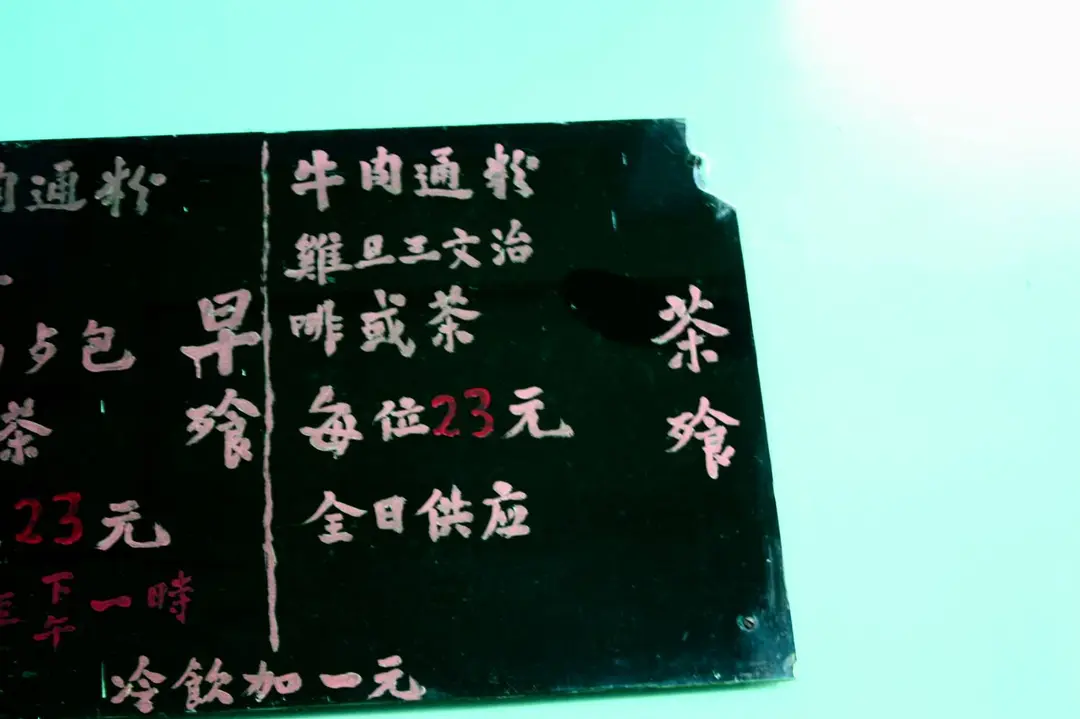 茶飱
牛肉通粉
雞旦三文治
啡或茶
每位23元
全日供应
早飱
肉通粉
包
茶
23元
至下午一時
冷飲加一元